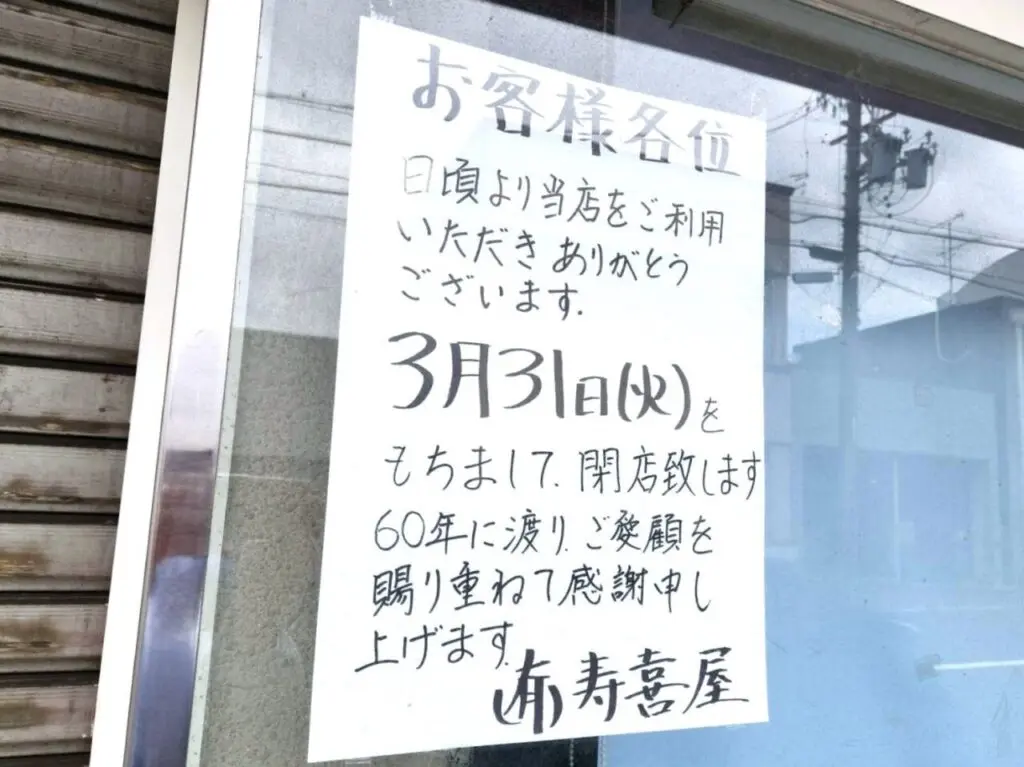 お客様各位
日頃より当店をご利用
いただき ありがとう
ございます.
3月31日(火)を
もちまして.閉店致します
60年に渡り.ご愛顧を
賜り重ねて感謝申し
上げます.
(有)寿喜屋